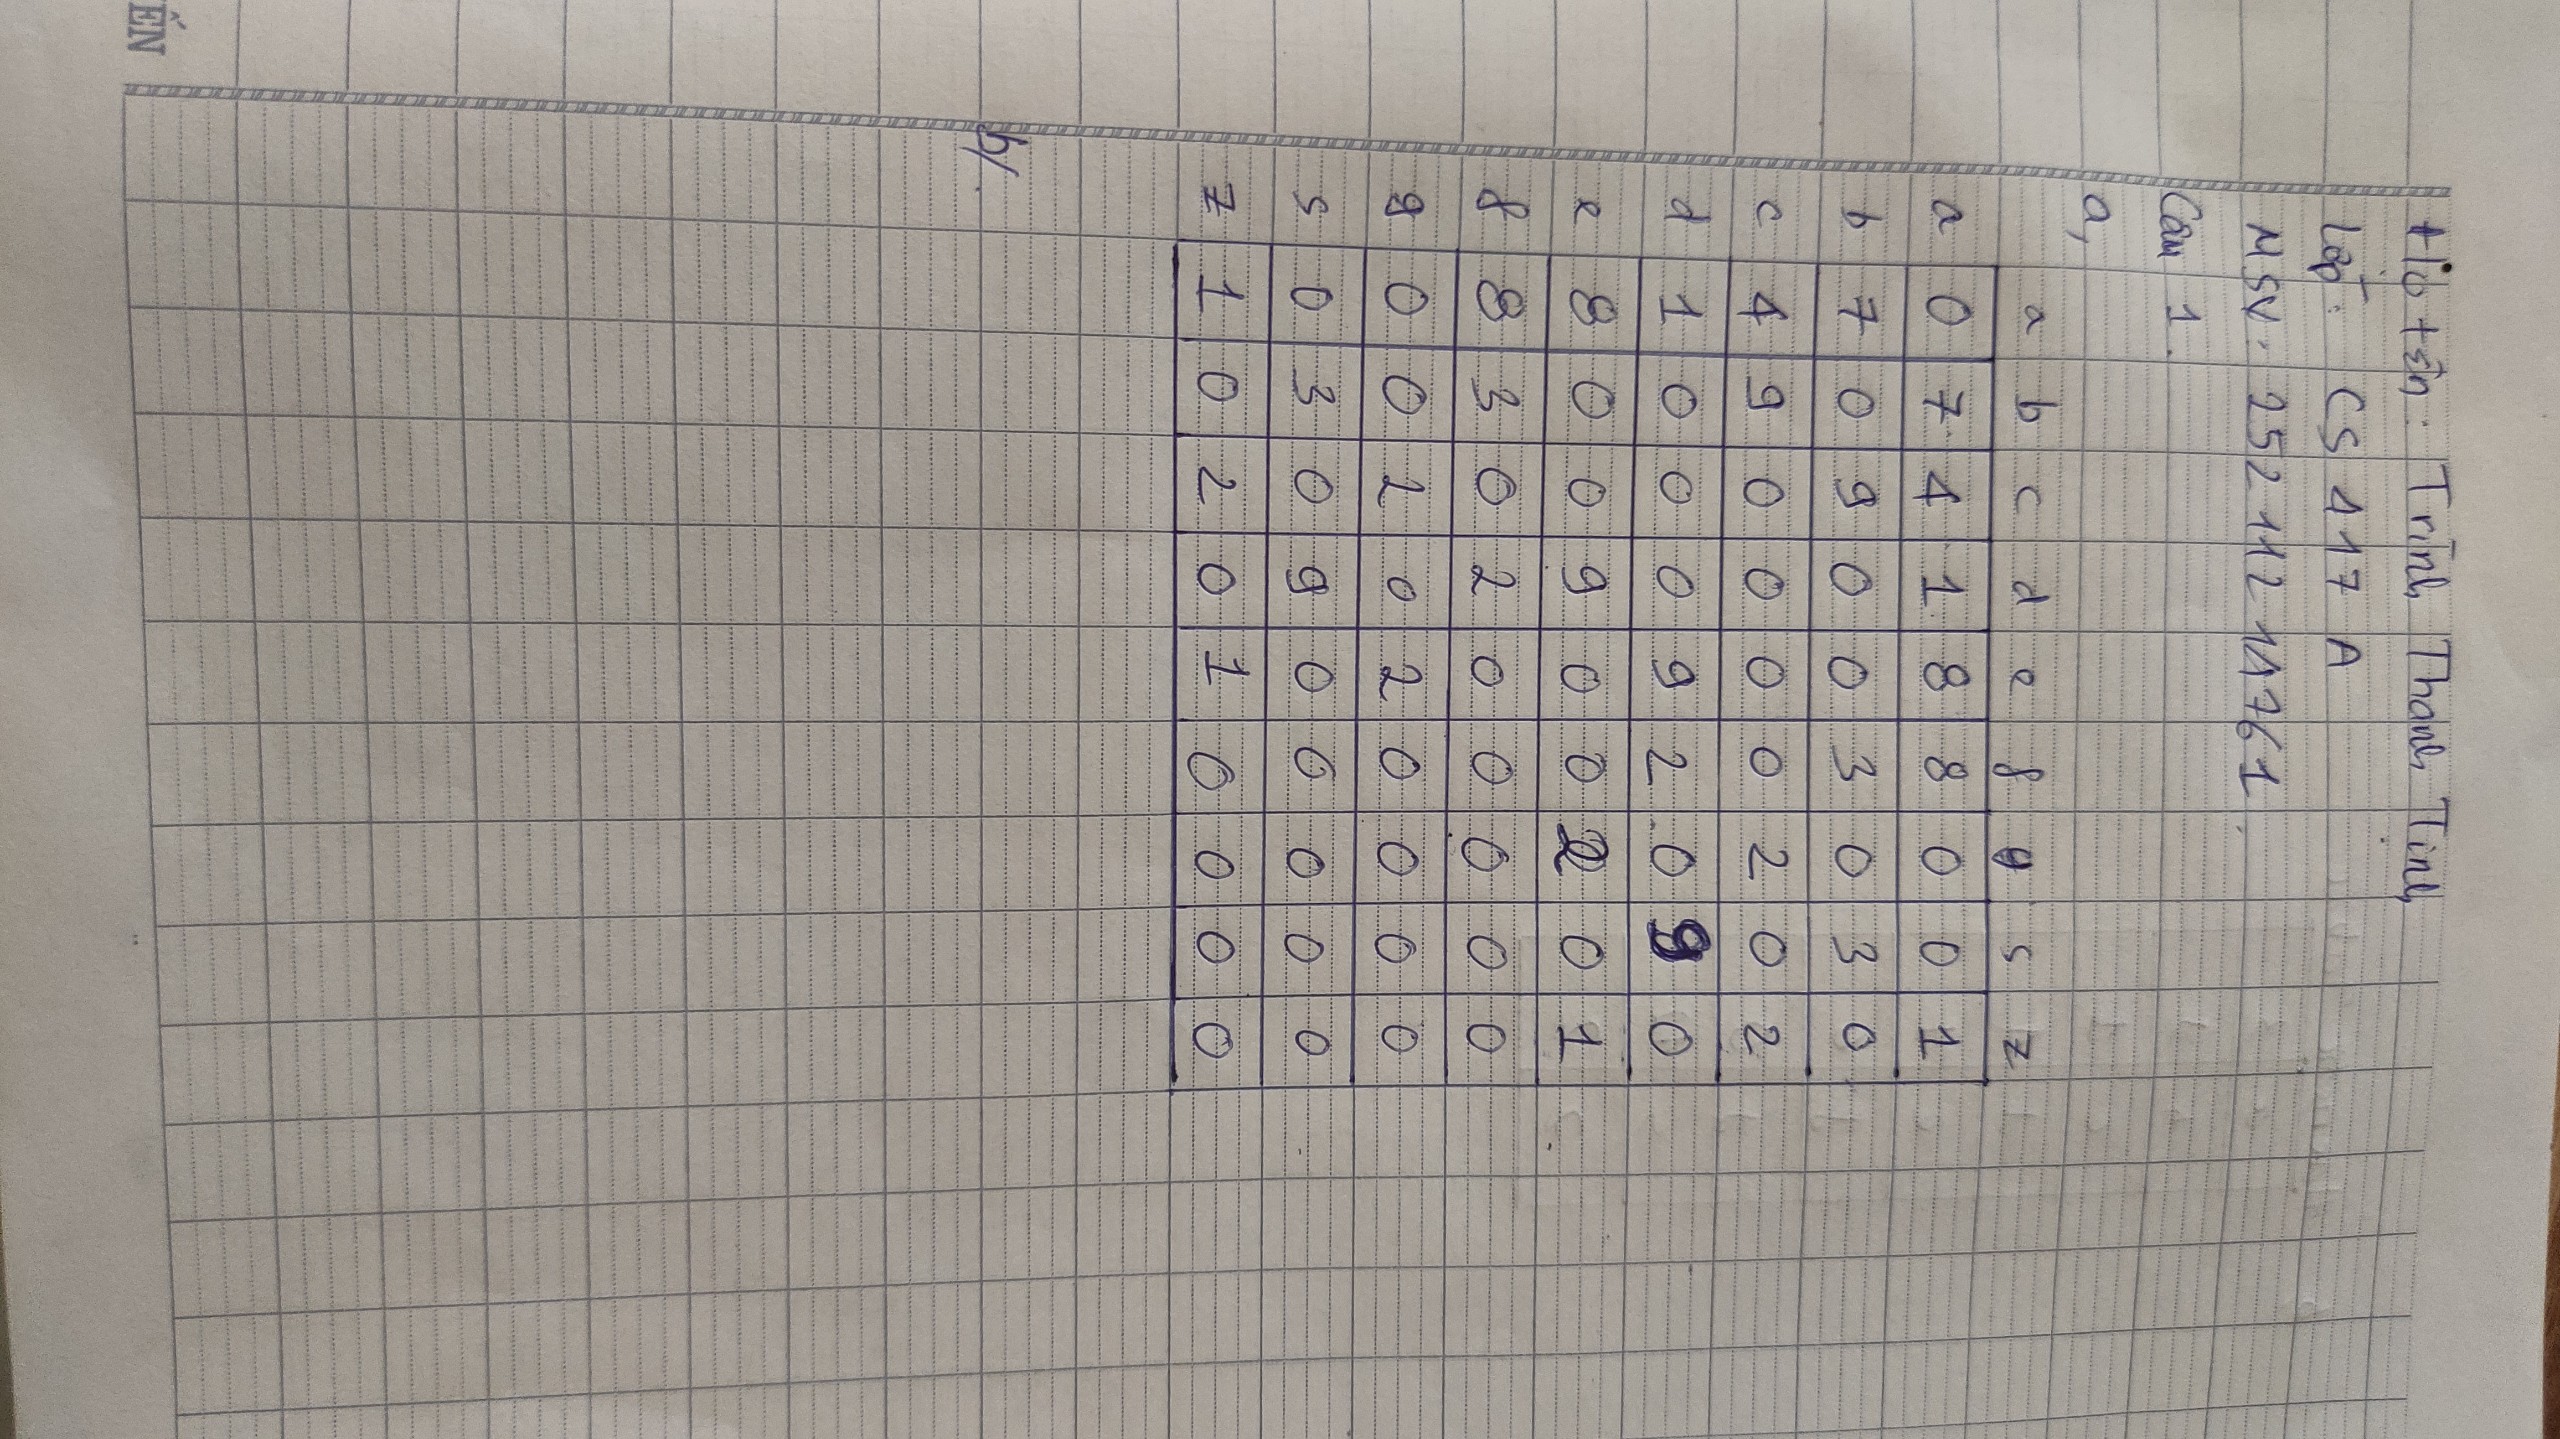 Họ tên: Trịnh Thanh Tình
Lớp: CS 417 A
MSV: 252 112 11761.
Câu 1.
a,
a b c d e f g s z
a 0 7 4 1 8 8 0 0 1
b 7 0 9 0 0 3 0 3 0
c 4 9 0 0 0 0 2 0 2
d 1 0 0 0 9 2 0 9 0
e 8 0 0 9 0 0 2 0 1
f 8 3 0 2 0 0 0 0 0
g 0 0 2 0 2 0 0 0 0
s 0 3 0 9 0 0 0 0 0
z 1 0 2 0 1 0 0 0 0
b/.
ẾN